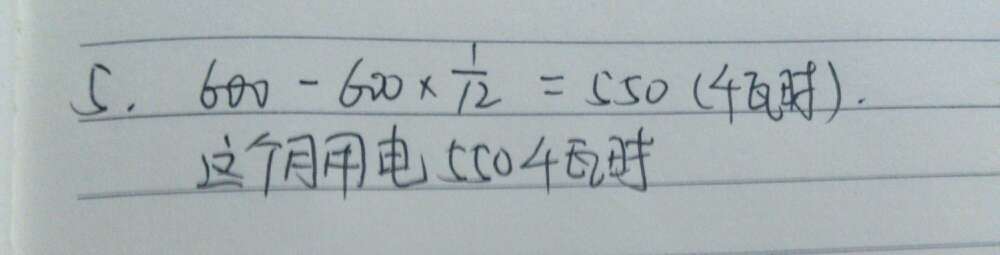 5. 600 - 600 × 1/12 = 550 (千瓦时).
这个月用电550千瓦时